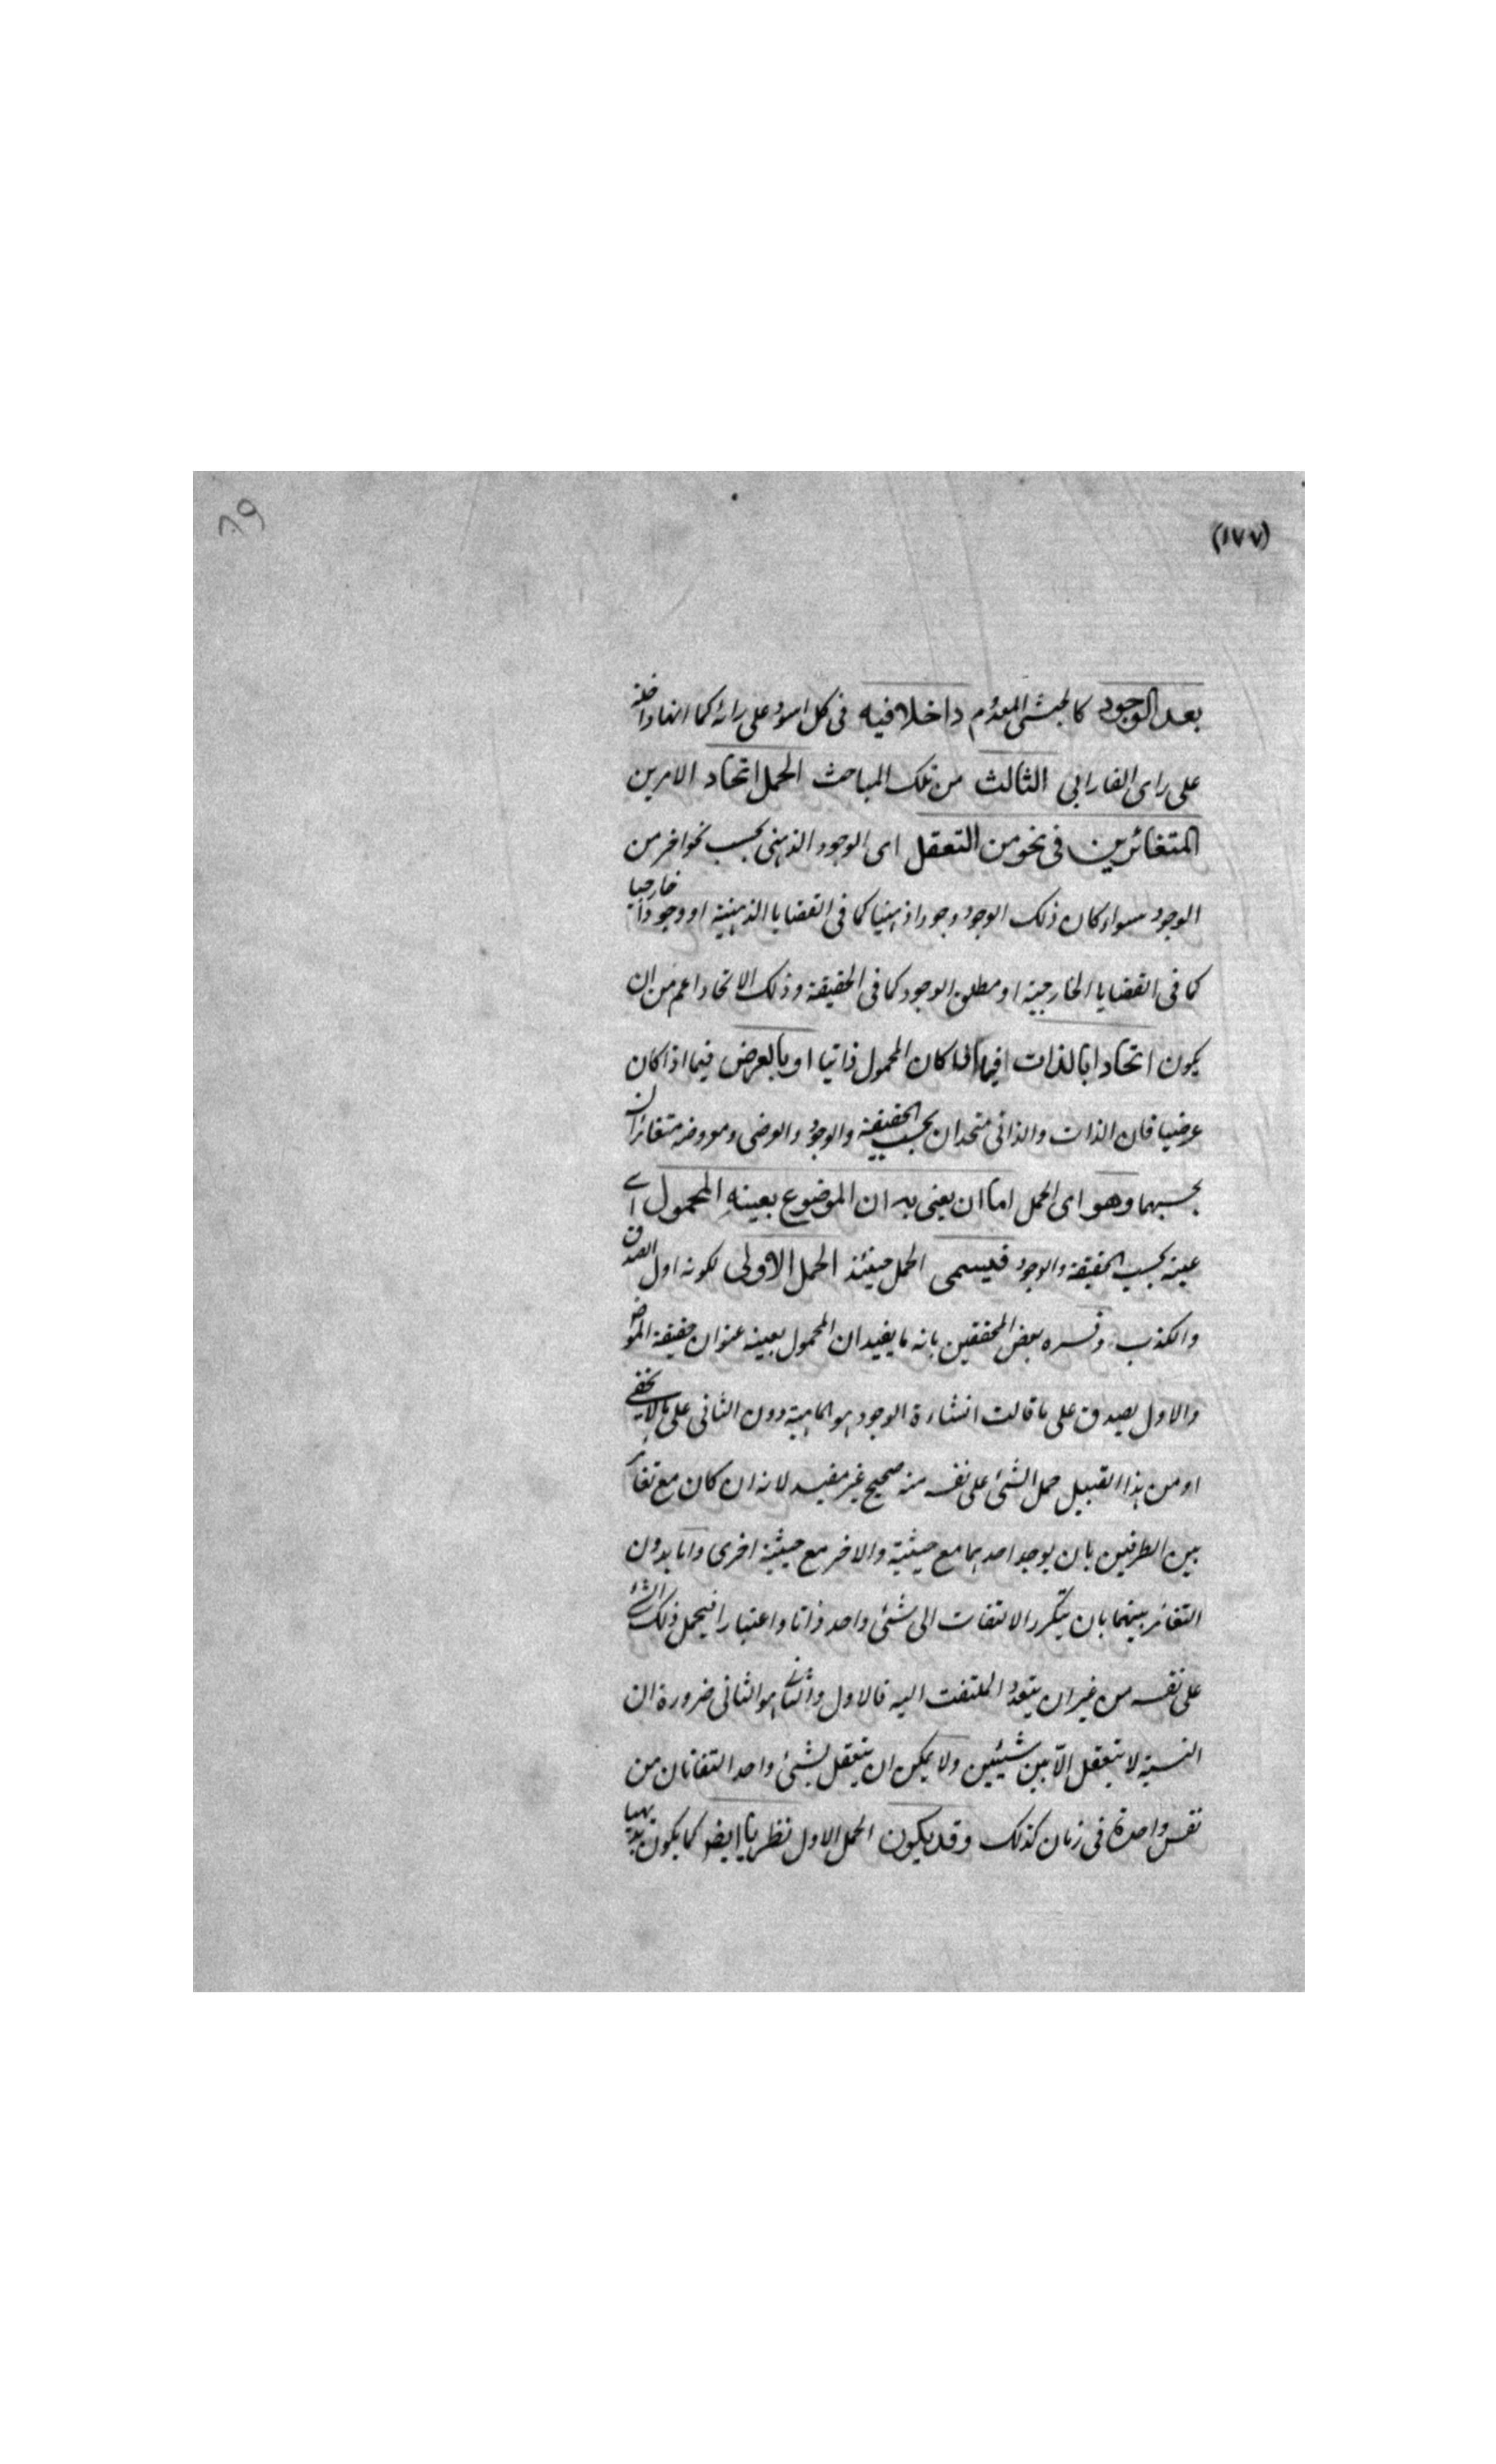 (١٧٧)
٨٩
بعد الوجود كالحبشي المعدوم داخلا فيه في كل اسود على رائه كما انها داخلة
على راى الفارابي الثالث من تلك المباحث الحمل اتحاد الامرين
المتغائرين في نحو من التعقل اى الوجود الذهني بحسب نحو اخر من
الوجود سواء كان ذلك الوجود وجودا ذهنيا كما في القضايا الذهنية او وجودا خارجيا
كما في القضايا الخارجية او مطلق الوجود كما في الحقيقة وذلك الاتحاد اعم من ان
يكون اتحادا بالذات فيما اذا كان المحمول ذاتيا او بالعرض فيما اذا كان
عرضيا فان الذات والذاتي متحدان بحسب الحقيقة والوجود والعرضي ومعروضه متغائران
بحسبهما وهو اى الحمل اما ان يعنى به ان الموضوع بعينه المحمول اے
عينه بحسب الحقيقة والوجود فيسمى الحمل حينئذ الحمل الاولى لكونه اول الصدق
والكذب وفسره بعض المحققين بانه ما يفيد ان المحمول بعينه عنوان حقيقة الموضوع
والاول يصدق على ما قالت الوجود هو الماهية دون الثاني على ما لا يخفے
او من هذا القبيل حمل الشئ على نفسه منه صحيح غير مفيد لانه ان كان مع تغائر
بين الطرفين بان يوجد احدهما مع حيثية والاخر مع حيثية اخرى واما بدون
التغائر بينهما بان يتكرر الالتفات الى شئ واحد ذاتا واعتبارا فيحمل ذلك الشئ
على نفسه من غير ان يتعدد الملتفت اليه فالاول والثاني هو الثاني ضرورة ان
النسبة لا يتعقل الا بين شيئين ولا يمكن ان يتعقل بشئ واحد التفاتان من
نفس واحدة في زمان كذلك وقد يكون الحمل الاول نظريا ايضا كما يكون بديهيا